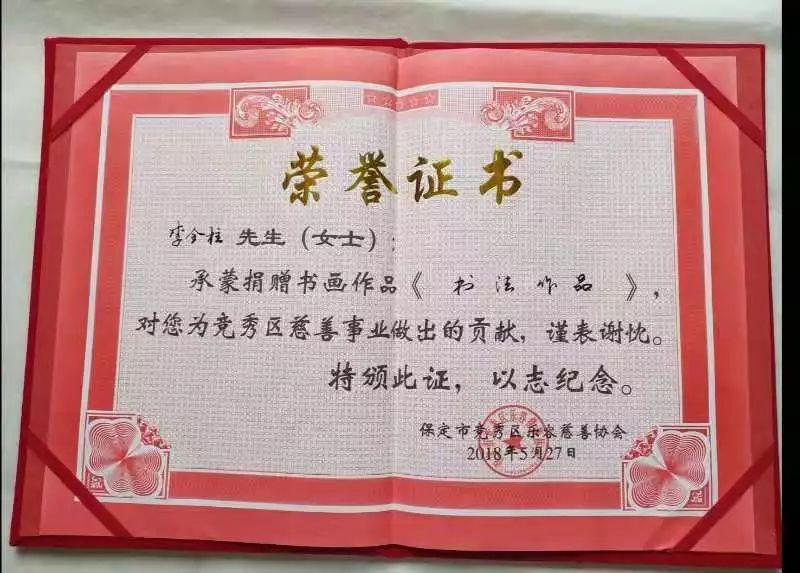 荣誉证书
李全柱 先生（女士）：
承蒙捐赠书画作品《 书法作品 》，
对您为竞秀区慈善事业做出的贡献，谨表谢忱。
特颁此证，以志纪念。
保定市竞秀区乐容慈善协会
2018年5月27日